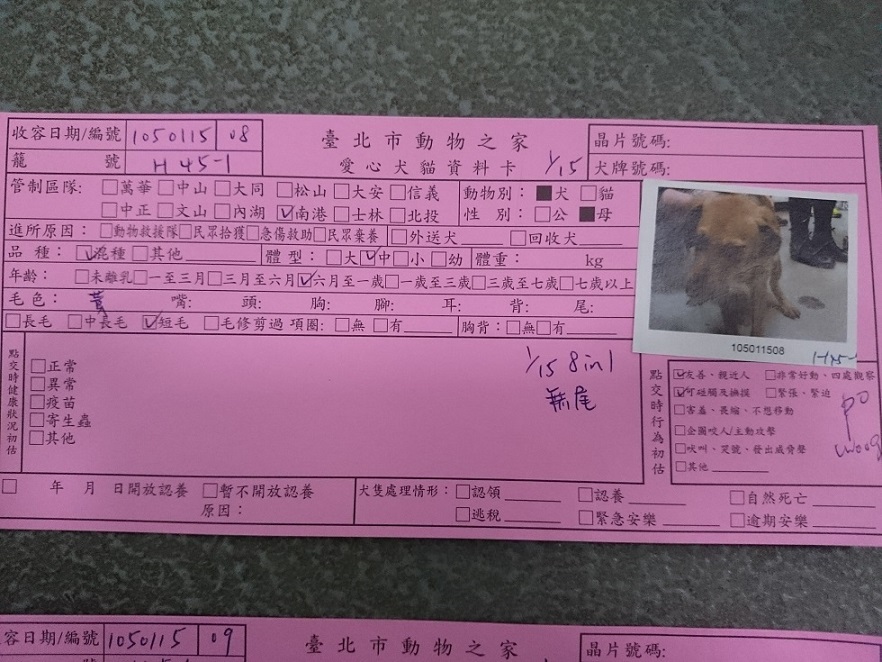 收容日期/編號 1050115 08
臺北市動物之家
晶片號碼:
籠號 H45-1
愛心犬貓資料卡 1/15
犬牌號碼:
管制區隊: □萬華□中山□大同 □松山□大安□信義 動物別: ■犬 □貓
□中正□文山□內湖☑南港□士林□北投 性別: □公 ■母
進所原因: □動物救援隊□民眾拾獲□急傷救助□民眾棄養 □外送犬 □回收犬
品種: ☑混種□其他 體型: □大☑中□小□幼 體重: kg
年齡: □未離乳□一至三月□三月至六月☑六月至一歲□一歲至三歲□三歲至七歲□七歲以上
毛色: 黃 嘴: 頭: 胸: 腳: 耳: 背: 尾:
□長毛 □中長毛 ☑短毛 □毛修剪過 項圈: □無 □有 胸背: □無□有
105011508
H45-1
點交時健康狀況初估
□正常
□異常
□疫苗
□寄生蟲
□其他
1/15 8in1
無尾
點交時行為初估
☑友善、親近人 □非常好動、四處觀察
☑可碰觸及撫摸 □緊張、緊迫
□害羞、畏縮、不想移動
□企圖咬人/主動攻擊
□吠叫、哭號、發出威脅聲
□其他
□ 年 月 日開放認養 □暫不開放認養
原因:
犬隻處理情形: □認領 □認養 □自然死亡
□逃稅 □緊急安樂 □逾期安樂
容日期/編號 1050115 09
臺北市動物之家
晶片號碼: